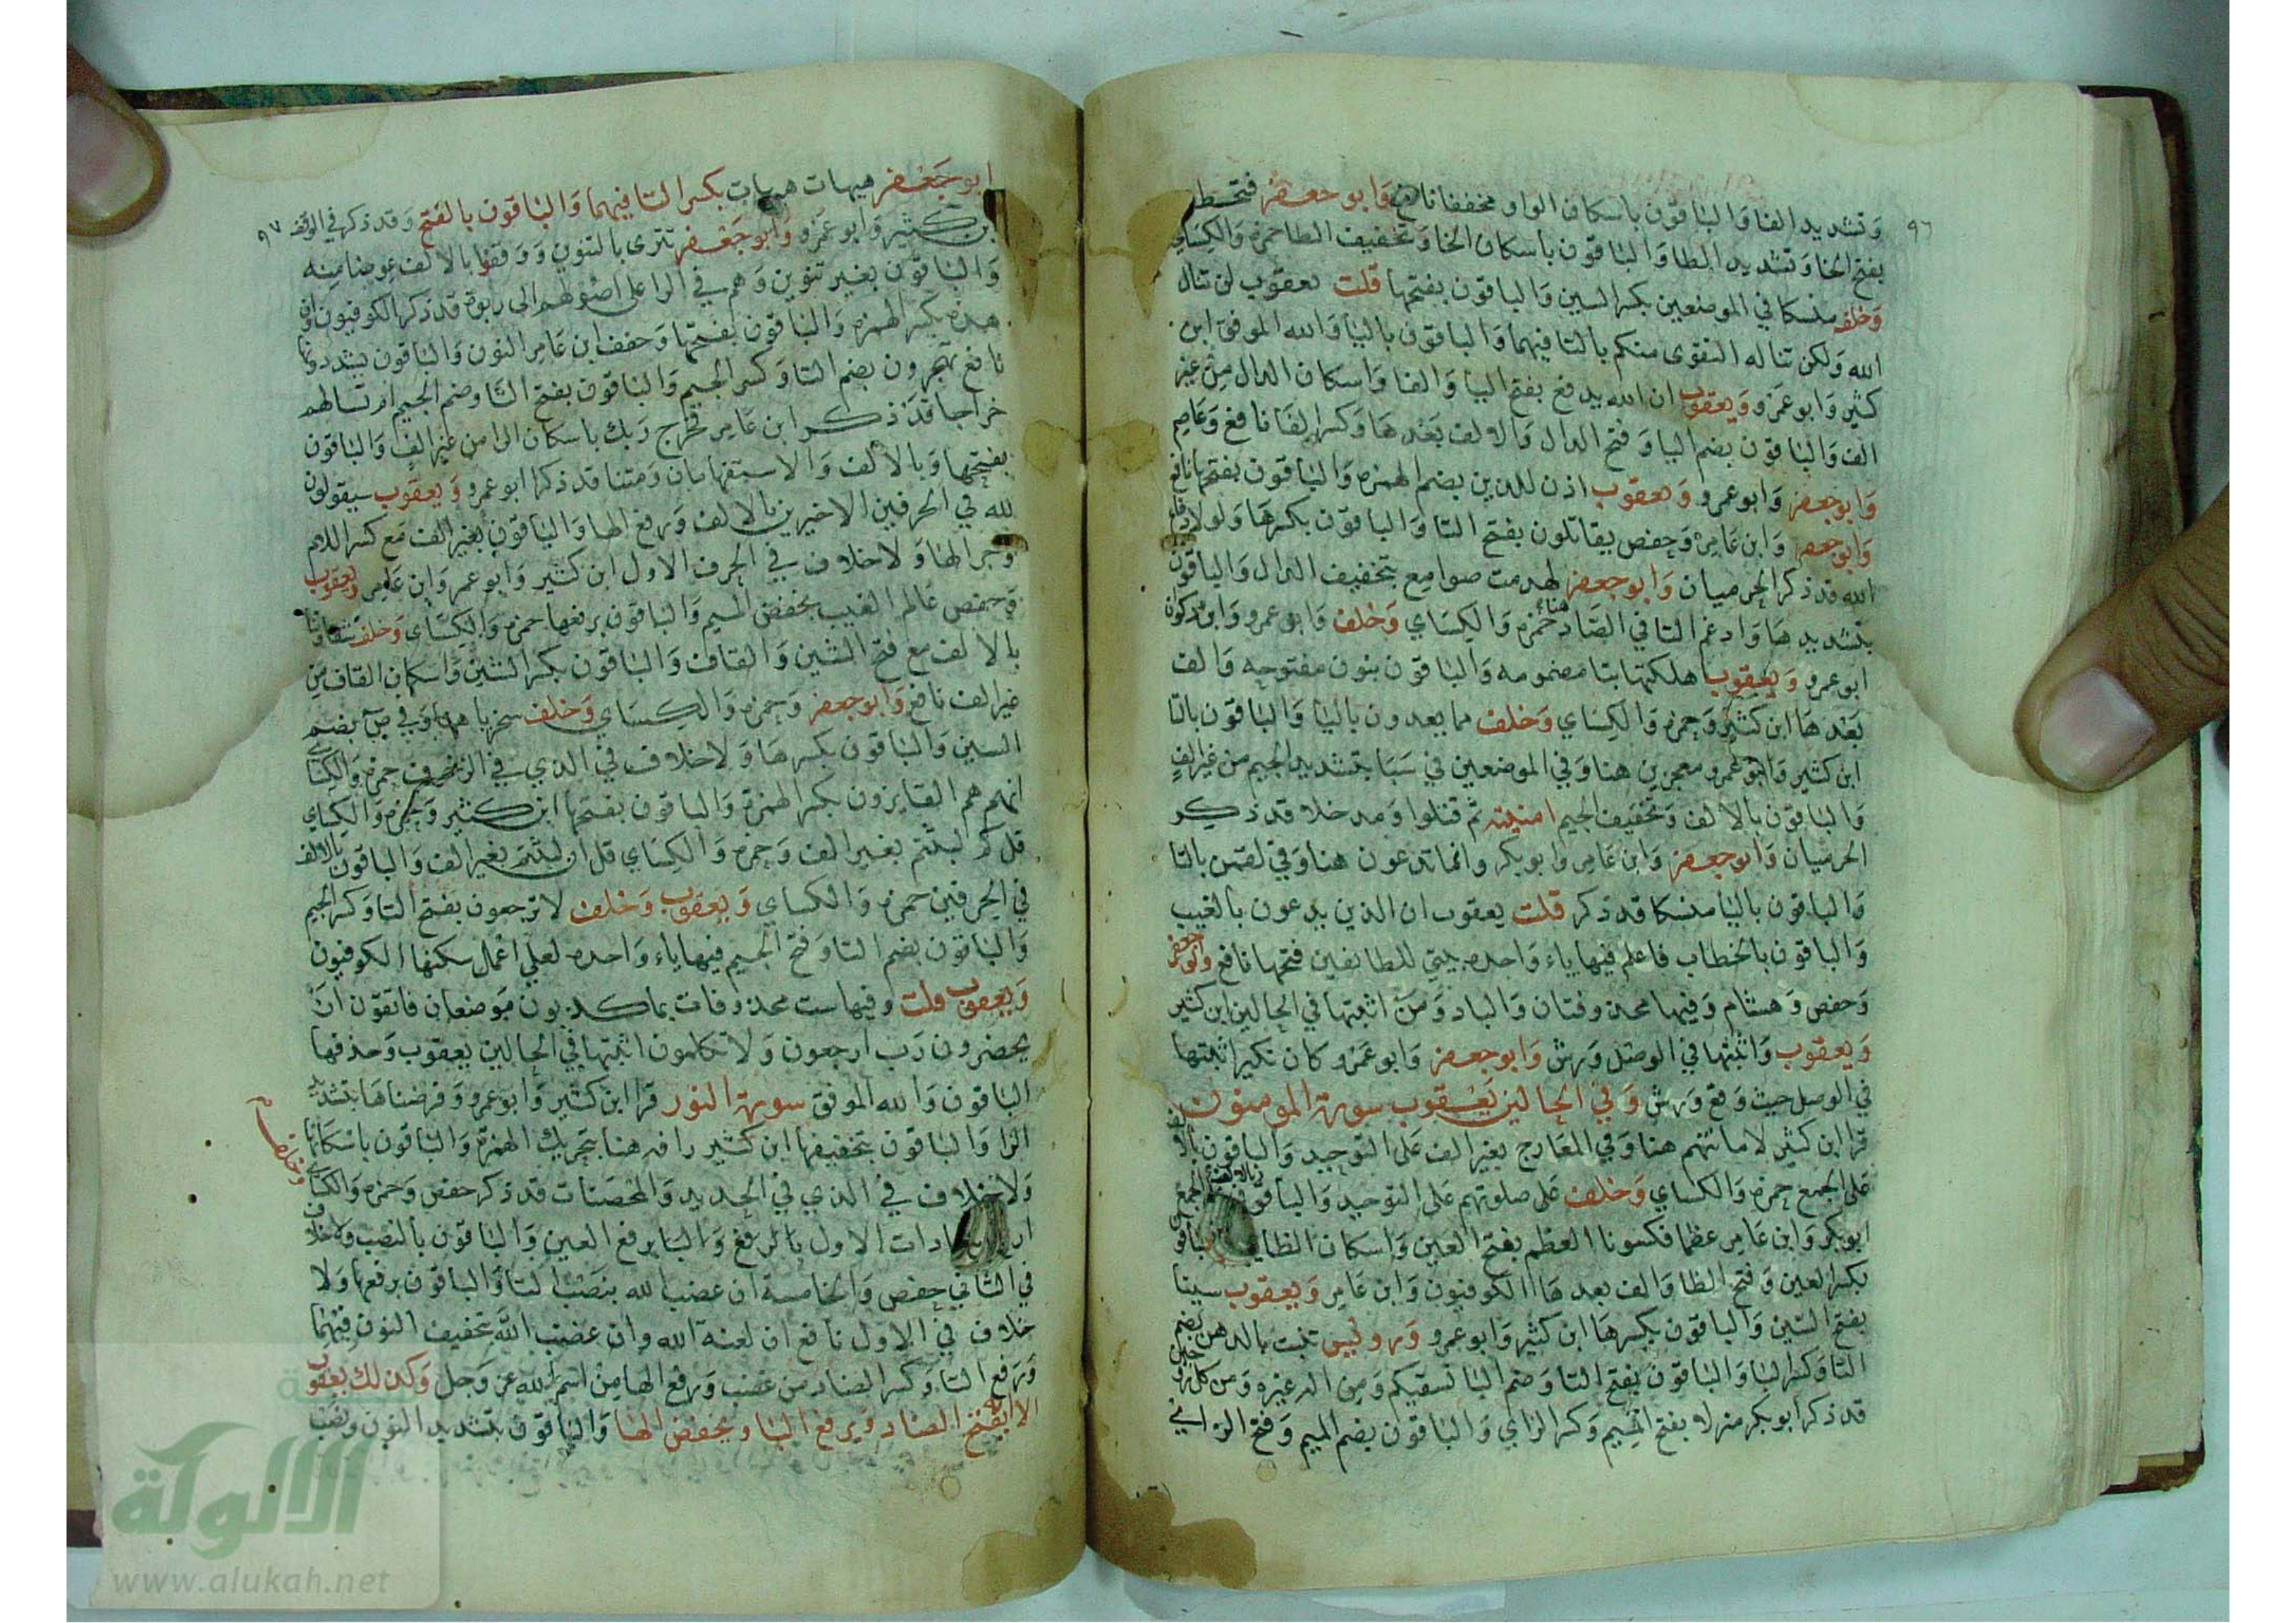 ٩٦
وتشديد الفا والباقون باسكان الواو مخففا نافع وابو جعفر فتخطفه
بفتح الخا وتشديد الطا والباقون باسكان الخا وتخفيف الطا حمزه والكساي
وخلف منسكا في الموضعين بكسر السين والباقون بفتحها قلت يعقوب لن تنال
الله ولكن تناله التقوى منكم بالتا فيهما والباقون باليا والله الموفق ابن
كثير وابو عمرو ويعقوب ان الله يدفع بفتح اليا والفا واسكان الدال من غير
الف والباقون بضم اليا وفتح الدال والالف بعدها وكسر الفا نافع وعاصم
وابو جعفر وابو عمرو ويعقوب اذن للذين بضم الهمزه والباقون بفتحها نافع
وابو جعفر وابن عامر وحفص يقاتلون بفتح التا والباقون بكسرها ولولا دفع
الله قد ذكر الحرميان وابو جعفر لهدمت صوامع بتخفيف الدال والباقون
بتشديدها وادغم التا في الصاد هنا حمزه والكساي وخلف وابو عمرو وابن ذكوان
ابو عمرو ويعقوب اهلكتها بتا مضمومه والباقون بنون مفتوحه والف
بعدها ابن كثير وحمزه والكساي وخلف مما يعدون باليا والباقون بالتا
ابن كثير وابو عمرو معجزين هنا وفي الموضعين في سبا بتشديد الجيم من غير الف
والباقون بالالف وتخفيف الجيم امنيته ثم قتلوا ومدخلا قد ذكر
الحرميان وابو جعفر وابن عامر وابو بكر وانما تدعون هنا وفي لقمن بالتا
والباقون باليا منسكا قد ذكر قلت يعقوب ان الذين يدعون بالغيب
والباقون بالخطاب فاعلم فيها ياء واحده بيتي للطائفين فتحها نافع وابو جعفر
وحفص وهشام وفيها محذوفتان والباد ومن اثبتها في الحالين ابن كثير
ويعقوب واثبتها في الوصل ورش وابو جعفر وابو عمرو كان نكير اثبتها
في الوصل حيث وقع ورش وفي الحالين يعقوب سورة المومنون
قرا ابن كثير لاماناتهم هنا وفي المعارج بغير الف على التوحيد والباقون بالالف
على الجمع حمزه والكساي وخلف على صلوتهم على التوحيد والباقون بالالف على الجمع
ابو بكر وابن عامر عظما فكسونا العظم بفتح العين واسكان الظا والباقون
بكسر العين وفتح الظا والف بعدها الكوفيون وابن عامر ويعقوب سينا
بفتح السين والباقون بكسرها ابن كثير وابو عمرو ورويس تنبت بالدهن بضم
التا وكسر البا والباقون بفتح التا وضم البا نسقيكم ومن اله غيره ومن كل زوجين
قد ذكر ابو بكر منزلا بفتح الميم وكسر الزاي والباقون بضم الميم وفتح الزاي
٩٧
ابو جعفر هيهات هيهات بكسر التا فيهما والباقون بالفتح وقد ذكر في الوقف
ابن كثير وابو عمرو وابو جعفر تترى بالتنوين ووقفوا بالالف عوضا منه
والباقون بغير تنوين وهم في الرا على اصولهم الى ربوة قد ذكر الكوفيون وان
هذه بكسر الهمزه والباقون بفتحها وخفف ابن عامر النون والباقون يشددونها
نافع تهجرون بضم التا وكسر الجيم والباقون بفتح التا وضم الجيم ام تسالهم
خراجا قد ذكر ابن عامر فخرج ربك باسكان الرا من غير الف والباقون
بفتحها وبالالف والاستفهامان ومتنا قد ذكر ابو عمرو ويعقوب سيقولون
لله في الحرفين الاخيرين بالالف ورفع الها والباقون بغير الف مع كسر اللام
وجر الها ولا خلاف في الحرف الاول ابن كثير وابو عمرو وابن عامر ويعقوب
وحفص عالم الغيب بخفض الميم والباقون برفعها حمزه والكساي وخلف شقاوتنا
بالالف مع فتح الشين والقاف والباقون بكسر الشين واسكان القاف من
غير الف نافع وابو جعفر وحمزه والكساي وخلف سخريا هنا وفي ص بضم
السين والباقون بكسرها ولا خلاف في الذي في الزخرف حمزه والكساي
انهم هم الفايزون بكسر الهمزة والباقون بفتحها ابن كثير وحمزه والكساي
قل كم لبثتم بغير الف وحمزه والكساي قل ان لبثتم بغير الف والباقون بالالف
في الحرفين حمزه والكساي ويعقوب وخلف لا ترجعون بفتح التا وكسر الجيم
والباقون بضم التا وفتح الجيم فيها ياء واحده لعلي اعمل سكنها الكوفيون
ويعقوب قلت وفيها ست محذوفات بما كذبون موضعان فاتقون ان
يحضرون رب ارجعون ولا تكلمون اثبتها في الحالين يعقوب وحذفها
الباقون والله الموفق سورة النور قرا ابن كثير وابو عمرو وفرضناها بتشديد
الرا والباقون بتخفيفها ابن كثير رافه هنا بتحريك الهمزة والباقون باسكانها
ولا خلاف في الذي في الحديد والمحصنات قد ذكر حفص وحمزه والكساي
وخلف
اربع شهادات الاول بالرفع والبا برفع العين والباقون بالنصب ولا خلاف
في الثاني حفص والخامسة ان غضب الله بنصب التا والباقون برفعها ولا
خلاف في الاول نافع ان لعنة الله وان غضب الله بتخفيف النون فيهما
ورفع التا وكسر الضاد من غضب ورفع الها من اسم الله عز وجل وكذلك يعقوب
الا انه بفتح الضاد ويرفع البا ويخفض الها والباقون بتشديد النون ونصب
الألوكة
www.alukah.net